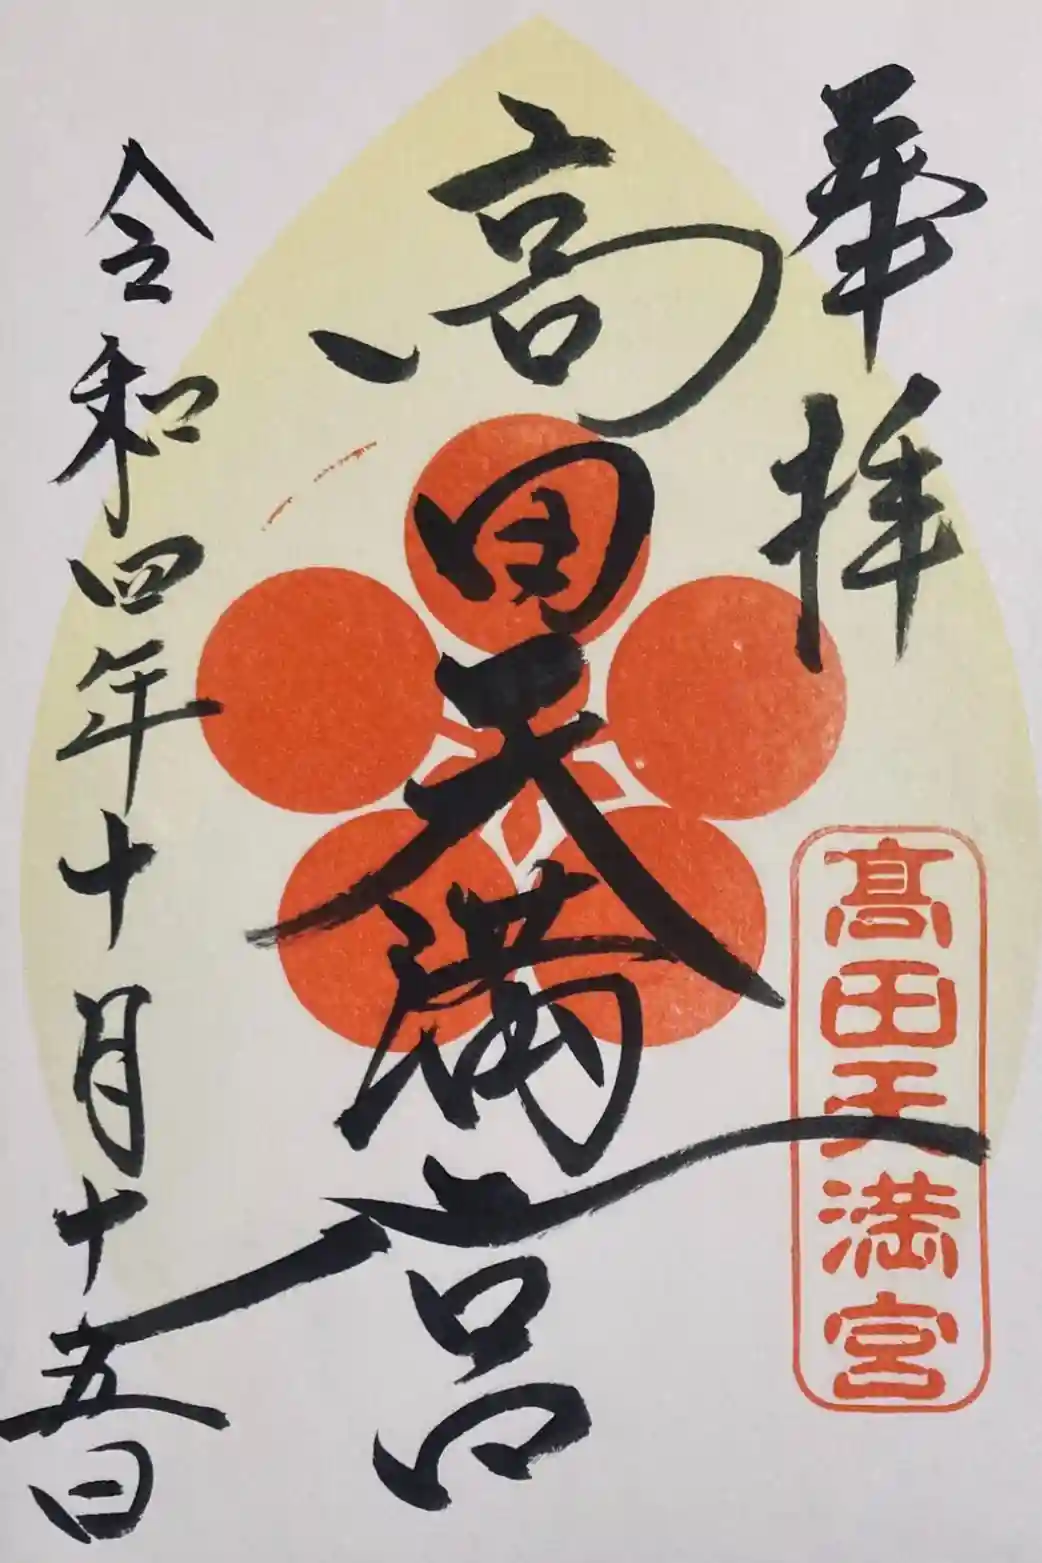 奉拝
高田天満宮
高田天満宮
令和四年十月十五日